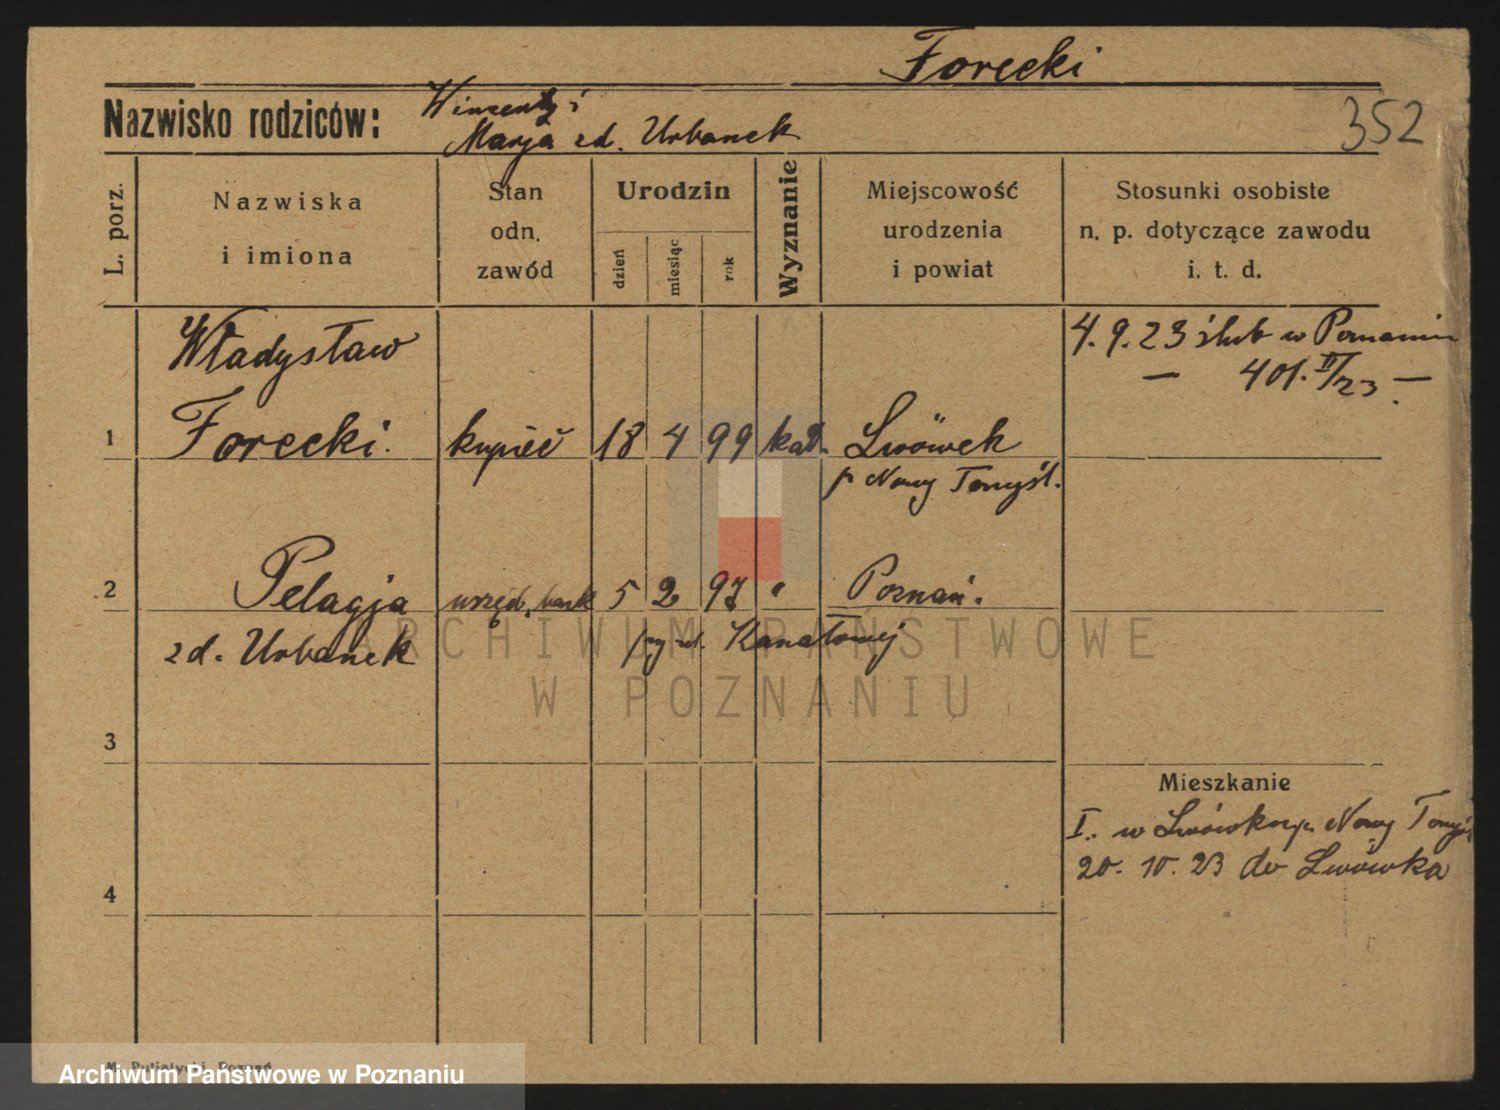 Forecki
Nazwisko rodziców: Wincenty i
Marja zd. Urbanek
352
L. porz.
Nazwiska
i imiona
Stan
odn.
zawód
Urodzin
dzień
miesiąc
rok
Wyznanie
Miejscowość
urodzenia
i powiat
Stosunki osobiste
n. p. dotyczące zawodu
i. t. d.
4. 9. 23 ślub w Poznaniu
— 401. II/23 —
Władysław
1 Forecki. kupiec 18 4 99 kat. Lwówek
p Nowy Tomyśl.
2 Pelagja urzęd. bank 5 2 97 " Poznań.
zd. Urbanek Kanałowej
ARCHIWUM PAŃSTWOWE
W POZNANIU
3
Mieszkanie
I. w Lwówku p. Nowy Tomyśl
20. 10. 23 do Lwówka
4
Archiwum Państwowe w Poznaniu